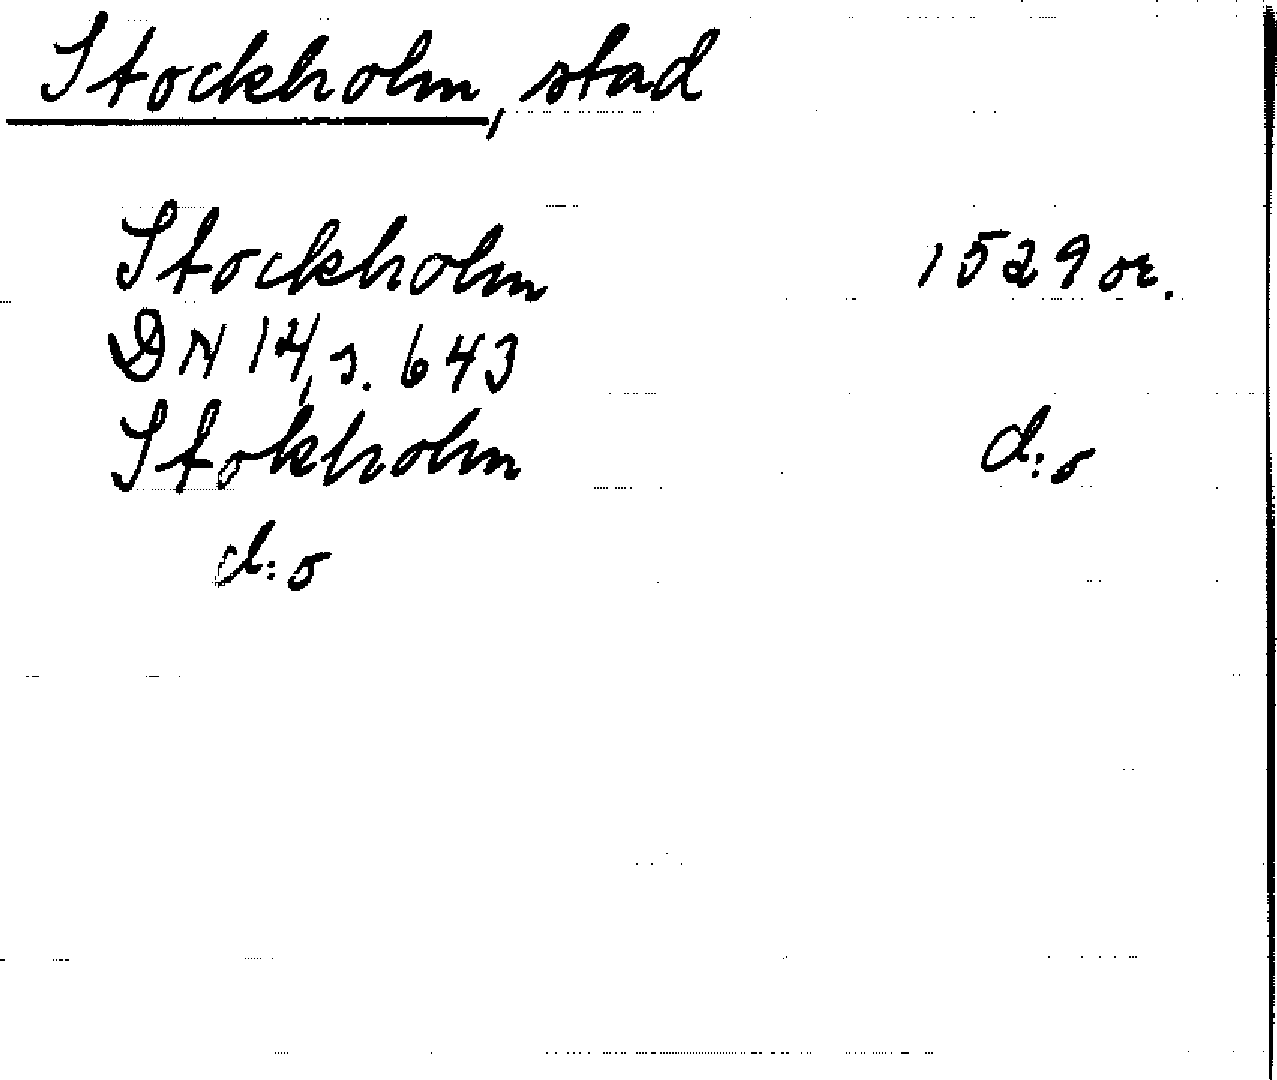 Stockholm, stad
Stockholm 1529 or.
DN 14, s. 643
Stokholm d:o
d:o